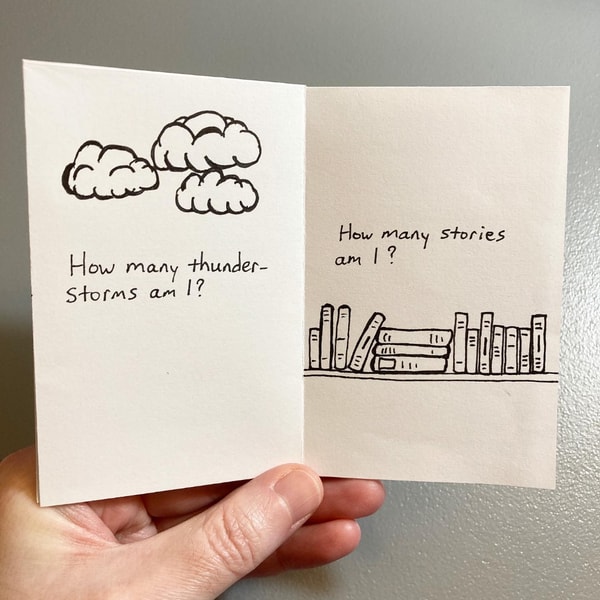 How many thunder-
storms am I?
How many stories
am I?